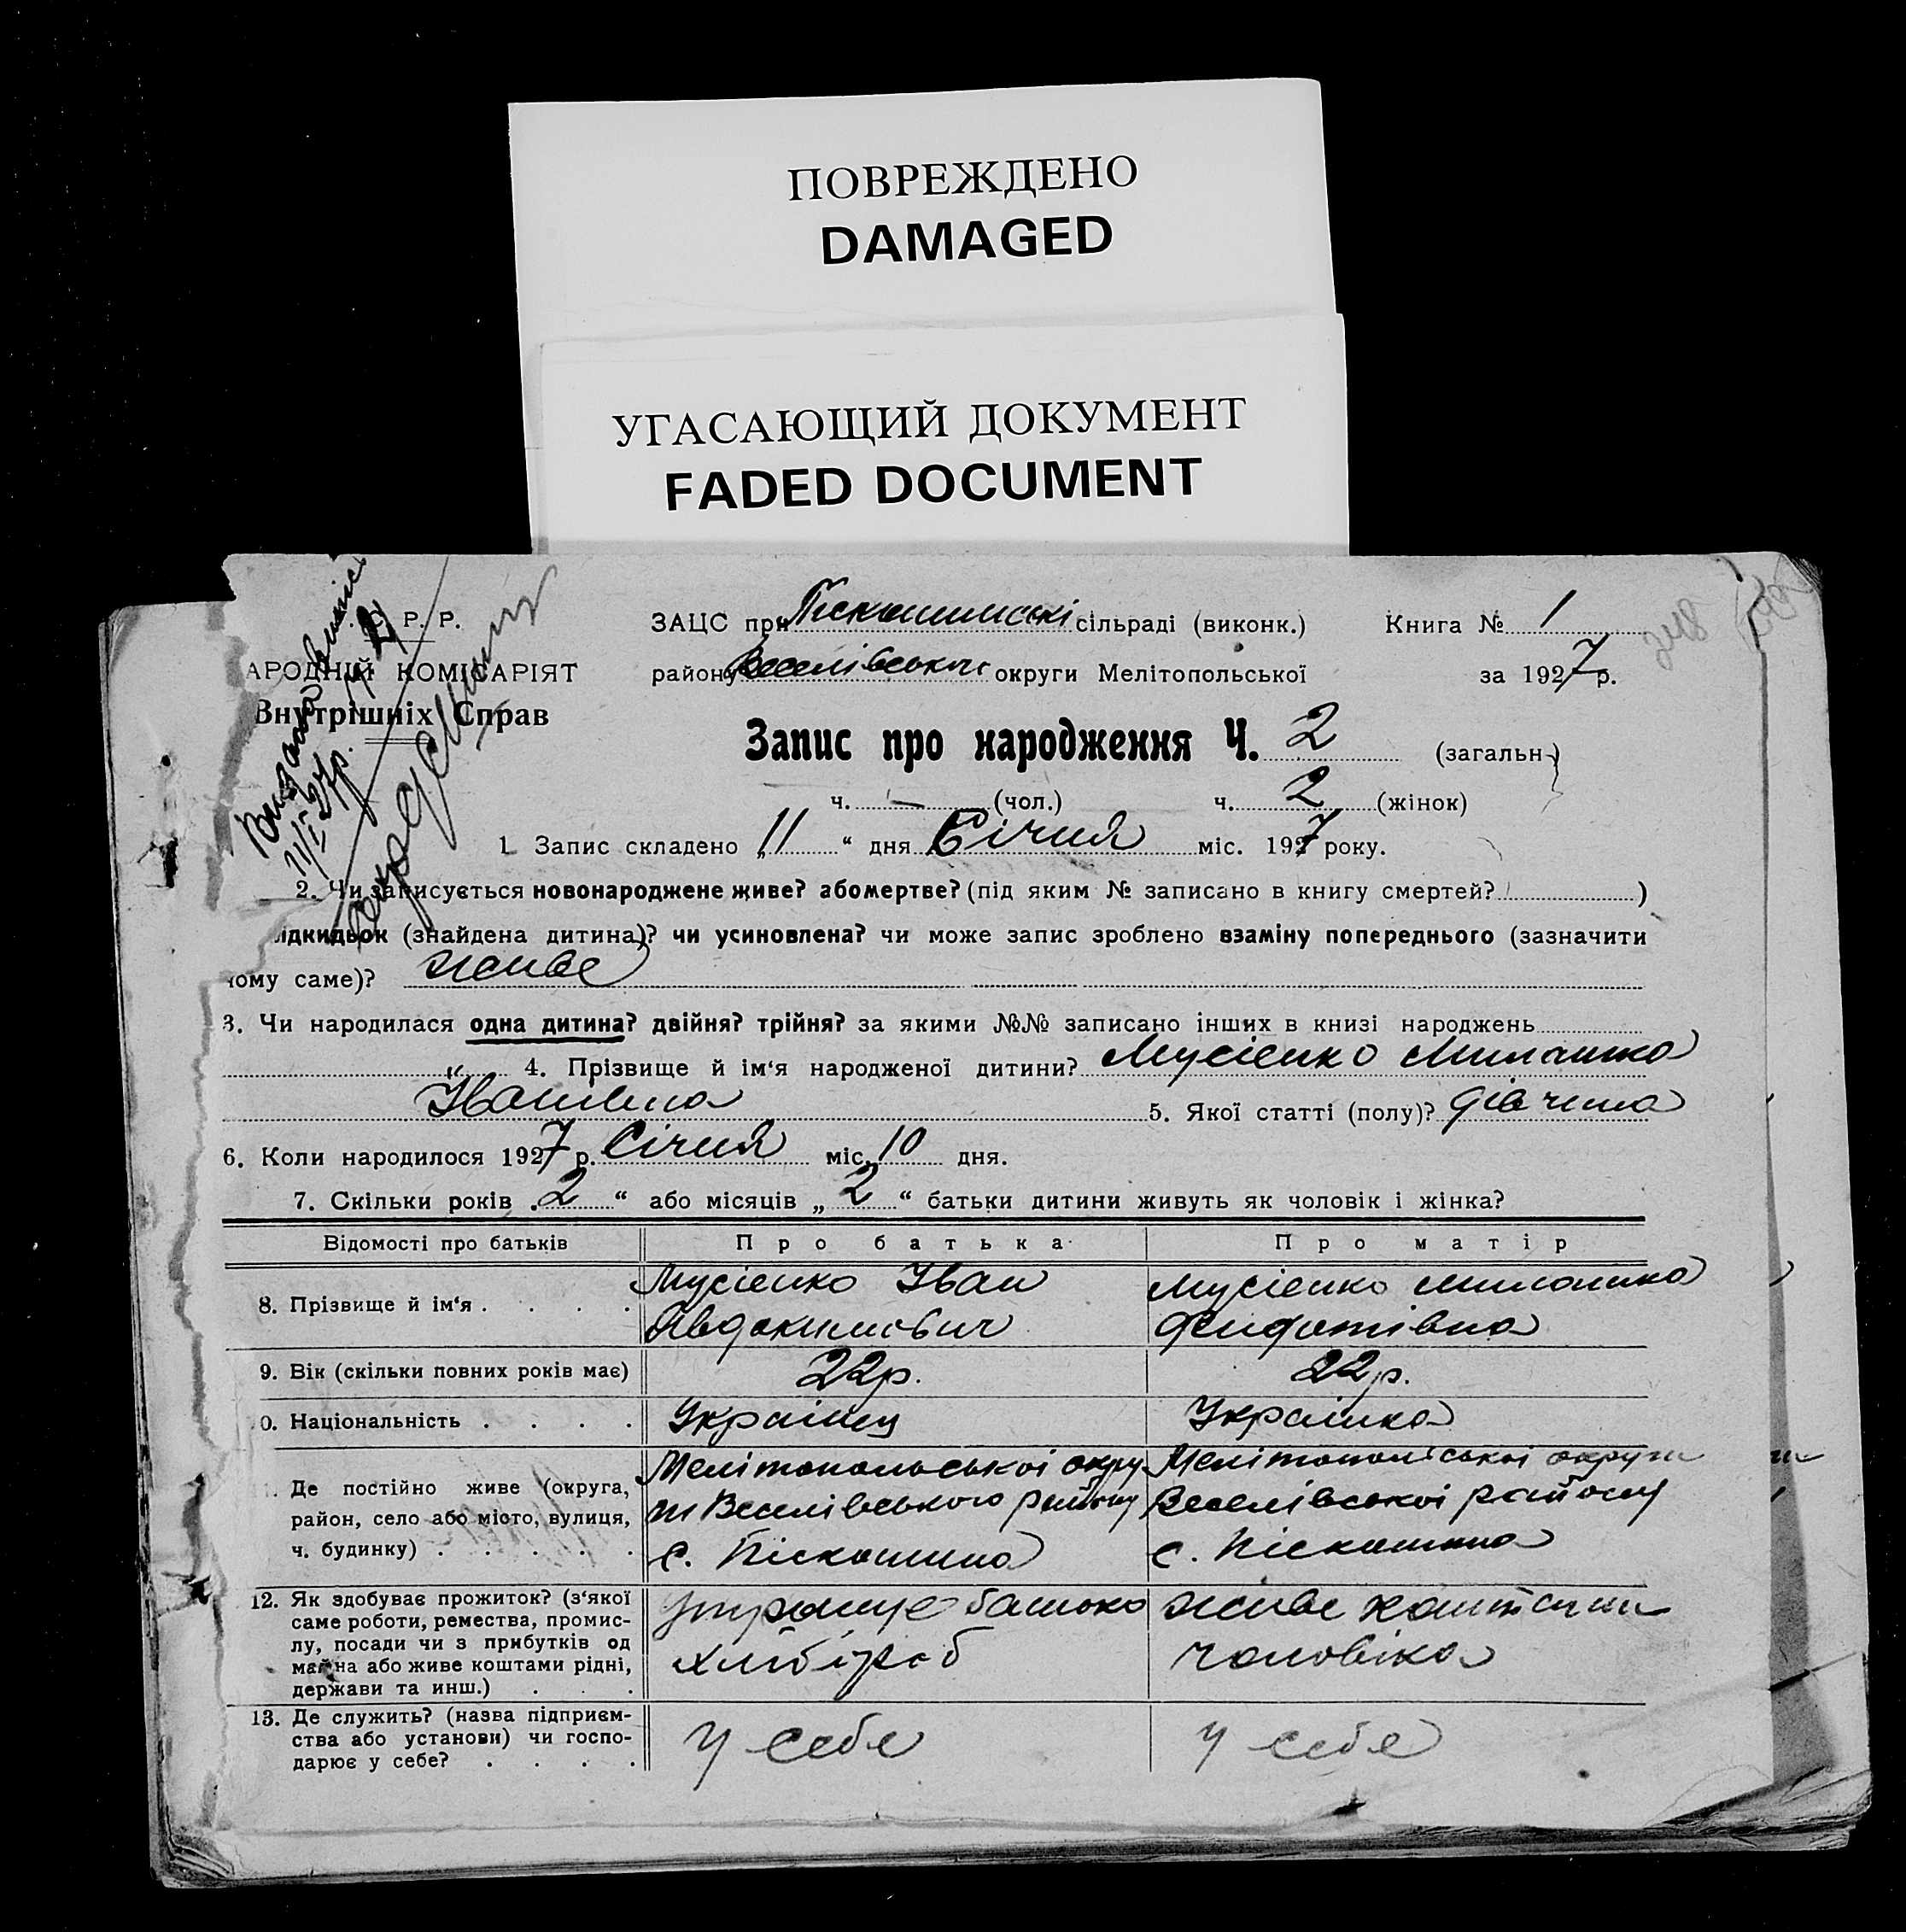 ПОВРЕЖДЕНО
DAMAGED
УГАСАЮЩИЙ ДОКУМЕНТ
FADED DOCUMENT
С. Р. Р.
АРОДНІЙ КОМІСАРІЯТ
Внутрішніх Справ
ЗАЦС при сільраді (виконк.) Книга № 1
району округи Мелітопольської за 1927 р.
Запис про народження Ч. 2 (загальн.)
ч. — (чол.) ч. 2 (жінок)
1. Запис складено „11“ дня Січня міс. 1927 року.
2. Чи записується новонароджене живе? або мертве? (під яким № записано в книгу смертей? )
ідкидьок (знайдена дитина)? чи усиновлена? чи може запис зроблено взаміну попереднього (зазначити
чому саме)? живе
3. Чи народилася одна дитина? двійня? трійня? за якими №№ записано інших в книзі народжень
4. Прізвище й ім‘я народженої дитини? Мусієнко Миланка
Іванівна 5. Якої статті (полу)? дівчина
6. Коли народилося 1927 р. Січня міс. 10 дня.
7. Скільки років „2“ або місяців „2“ батьки дитини живуть як чоловік і жінка?
Відомості про батьків Про батька Про матір
8. Прізвище й ім‘я . . . . Мусієнко Іван Мусієнко Миланка
Явдокимович Фидотівна
9. Вік (скільки повних років має) 22 р. 22 р.
0. Національність . . . . Українец Українка
1. Де постійно живе (округа, район, село або місто, вулиця, ч. будинку) . . . . .
Мелітопольської окру Мелітопольської округи
ги Веселівського району Веселівської району
с. Піскошина с. Піскошина
12. Як здобуває прожиток? (з‘якої саме роботи, ремества, промислу, посади чи з прибутків од майна або живе коштами рідні, держави та инш.) . . .
батько живе коштами
хлібороб чоловіка
13. Де служить? (назва підприємства або установи) чи господарює у себе? . . . .
у себе у себе